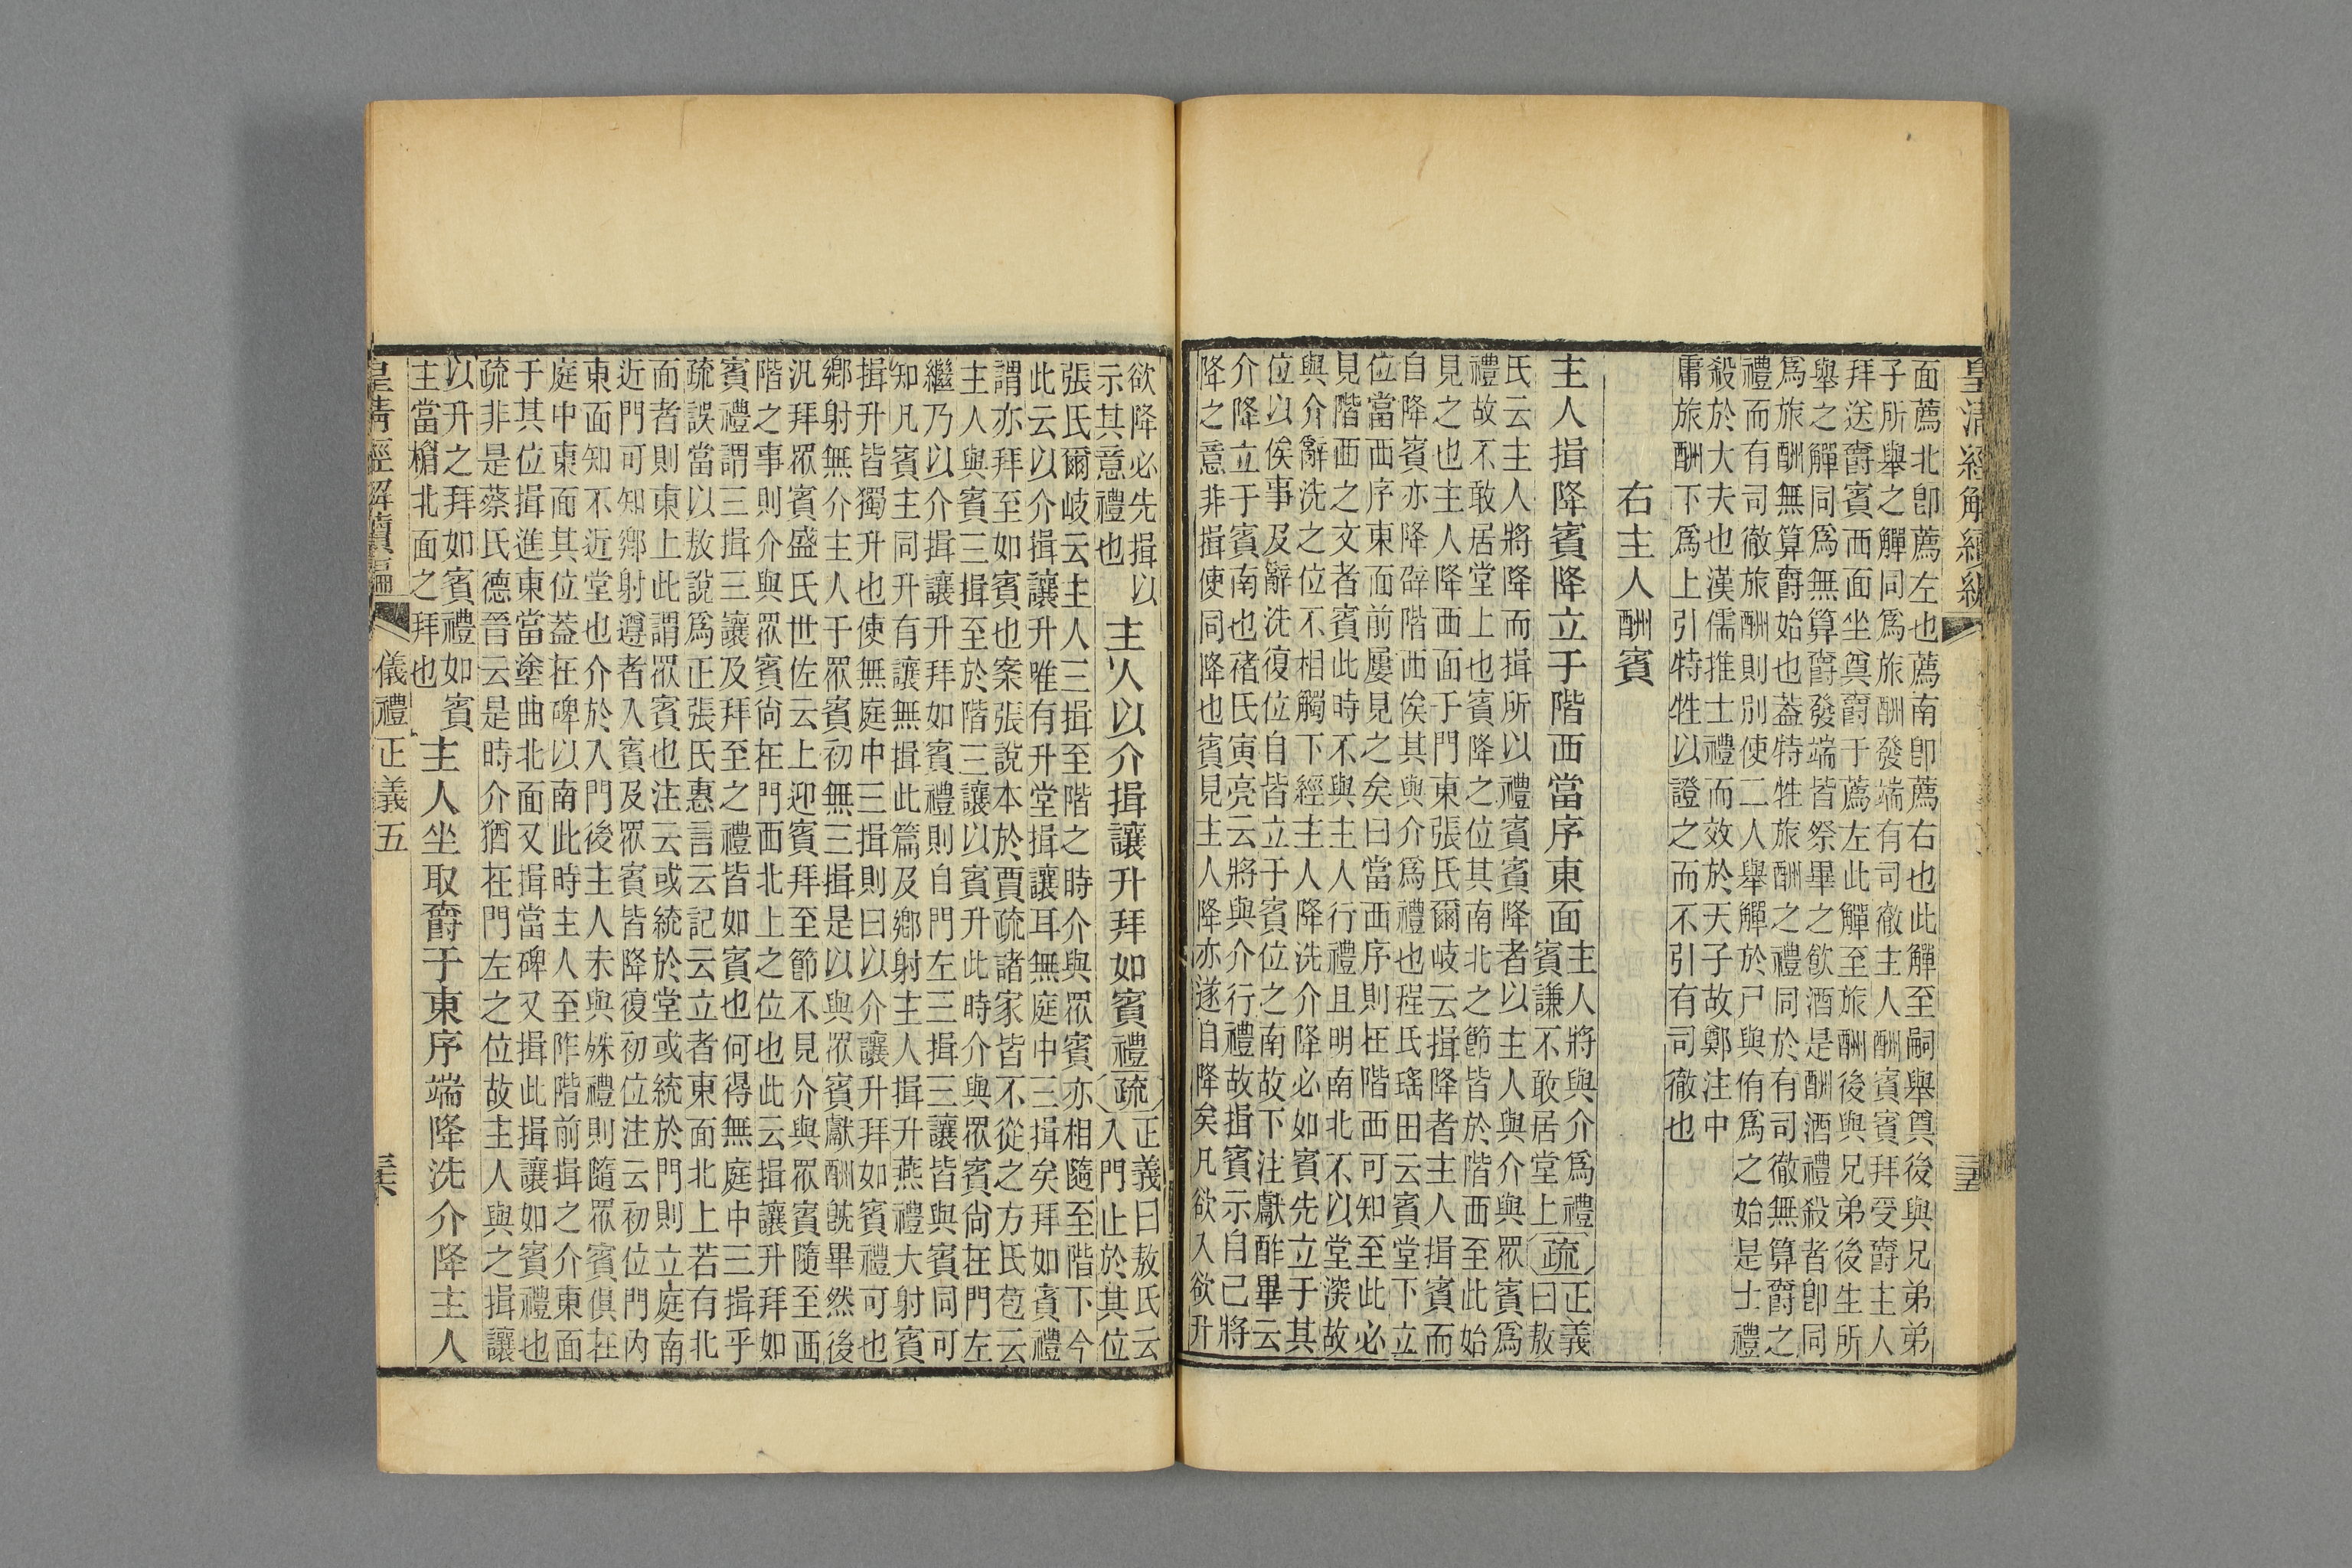 皇清經解續編
三五
面薦北卽薦左也薦南卽薦右也此觶至嗣舉奠後與兄弟弟
子所舉之觶同爲旅酬發端有司徹主人酬賓賓拜受爵主人
拜送爵賓西面坐奠爵于薦左此觶至旅酬後與兄弟後生所
舉之觶同爲無算爵發端皆祭畢之飮酒是酬酒禮殺者卽同
爲旅酬無算爵始也葢特牲旅酬之禮同於有司徹無算爵之
禮而有司徹旅酬則別使二人舉觶於尸與侑爲之始是士禮
殺於大夫也漢儒推士禮而效於天子故鄭注中
庸旅酬下爲上引特牲以證之而不引有司徹也
右主人酬賓
主人揖降賓降立于階西當序東面
主人將與介爲禮
賓謙不敢居堂上
疏
正義
曰敖
氏云主人將降而揖所以禮賓賓降者以主人與介與眾賓爲
禮故不敢居堂上也賓降之位其南北之節皆於階西至此始
見之也主人降西面于門東張氏爾岐云揖降者主人揖賓而
自降賓亦降辟階西俟其與介爲禮也程氏瑤田云賓堂下立
位當西序東面前屢見之矣曰當西序則在階西可知至此必
見階西之文者賓此時不與主人行禮且明南北不以堂深故
與介辭洗之位不相觸下經主人降洗介降必如賓先立于其
位以俟事及辭洗復位自皆立于賓位之南故下注獻酢畢云
介降立于賓南也褚氏寅亮云將與介行禮故揖賓示自己將
降之意非揖使同降也賓見主人降亦遂自降矣凡欲入欲升
欲降必先揖以
示其意禮也
主人以介揖讓升拜如賓禮
疏
正義曰敖氏云
入門止於其位
張氏爾岐云主人三揖至階之時介與眾賓亦相隨至階下今
此云以介揖讓升唯有升堂揖讓耳無庭中三揖矣拜如賓禮
謂亦拜至如賓也案張說本於賈疏諸家皆不從之方氏苞云
主人與賓三揖至於階三讓以賓升此時介與眾賓尙在門左
繼乃以介揖讓升拜如賓禮則自門左三揖三讓皆與賓同可
知凡賓主同升有讓無揖此篇及鄕射主人揖升燕禮大射賓
揖升皆獨升也使無庭中三揖則曰以介讓升拜如賓禮可也
鄕射無介主人于眾賓初無三揖是以與眾賓獻酬旣畢然後
汎拜眾賓盛氏世佐云上迎賓拜至節不見介與眾賓隨至西
階之事則介與眾賓尙在門西北上之位也此云揖讓升拜如
賓禮謂三揖三讓及拜至之禮皆如賓也何得無庭中三揖乎
疏誤當以敖說爲正張氏惠言云記云立者東面北上若有北
面者則東上此謂眾賓也注云或統於堂或統於門則立庭南
近門可知鄕射遵者入賓及眾賓皆降復初位注云初位門內
東面知不近堂也介於入門後主人未與殊禮則隨眾賓俱在
庭中東面其位葢在碑以南此時主人至阼階前揖之介東面
于其位揖進東當塗曲北面又揖當碑又揖此揖讓如賓禮也
疏非是蔡氏德晉云是時介猶在門左之位故主人與之揖讓
以升之拜如賓禮如賓
主當楣北面之拜也
主人坐取爵于東序端降洗介降主人
皇清經解續編
儀禮正義五
三六